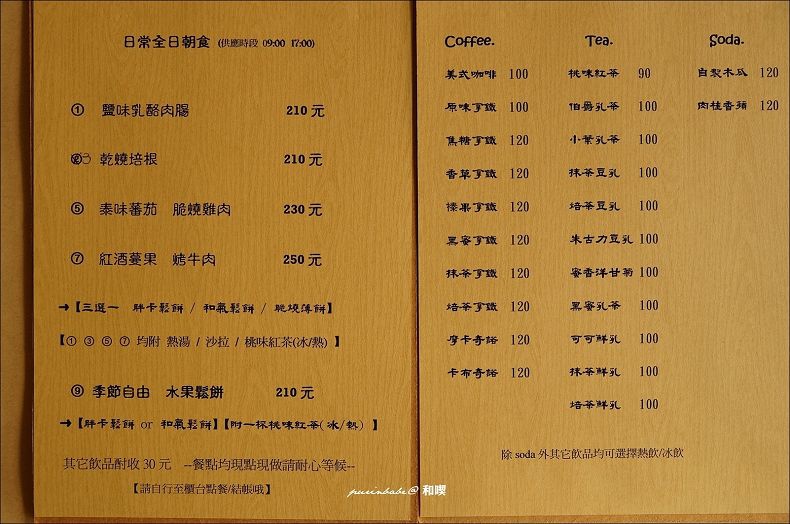 日常全日朝食 (供應時段 09:00 17:00)
① 鹽味乳酪肉腸 210 元
乾燒培根 210 元
⑤ 泰味蕃茄 脆燒雞肉 230 元
⑦ 紅酒蔓果 烤牛肉 250 元
→【三選一 胖卡鬆餅 / 和氣鬆餅 / 脆燒薄餅】
【① ③ ⑤ ⑦ 均附 熱湯 / 沙拉 / 桃味紅茶(冰/熱) 】
⑨ 季節自由 水果鬆餅 210 元
→【胖卡鬆餅 or 和氣鬆餅】【附一杯桃味紅茶(冰/熱) 】
其它飲品酎收 30 元 --餐點均現點現做請耐心等候--
【請自行至櫃台點餐/結帳哦】
Coffee.
美式咖啡 100
原味拿鐵 100
焦糖拿鐵 120
香草拿鐵 120
榛果拿鐵 120
黑蜜拿鐵 120
抹茶拿鐵 120
焙茶拿鐵 120
摩卡奇諾 120
卡布奇諾 120
Tea.
桃味紅茶 90
伯爵乳茶 100
小葉乳茶 100
抹茶豆乳 100
焙茶豆乳 100
朱古力豆乳 100
蜜香洋甘菊 100
黑蜜乳茶 100
可可鮮乳 100
抹茶鮮乳 100
焙茶鮮乳 100
Soda.
自製木瓜 120
肉桂香蘋 120
除 soda 外其它飲品均可選擇熱飲/冰飲
purinbabe@ 和喫